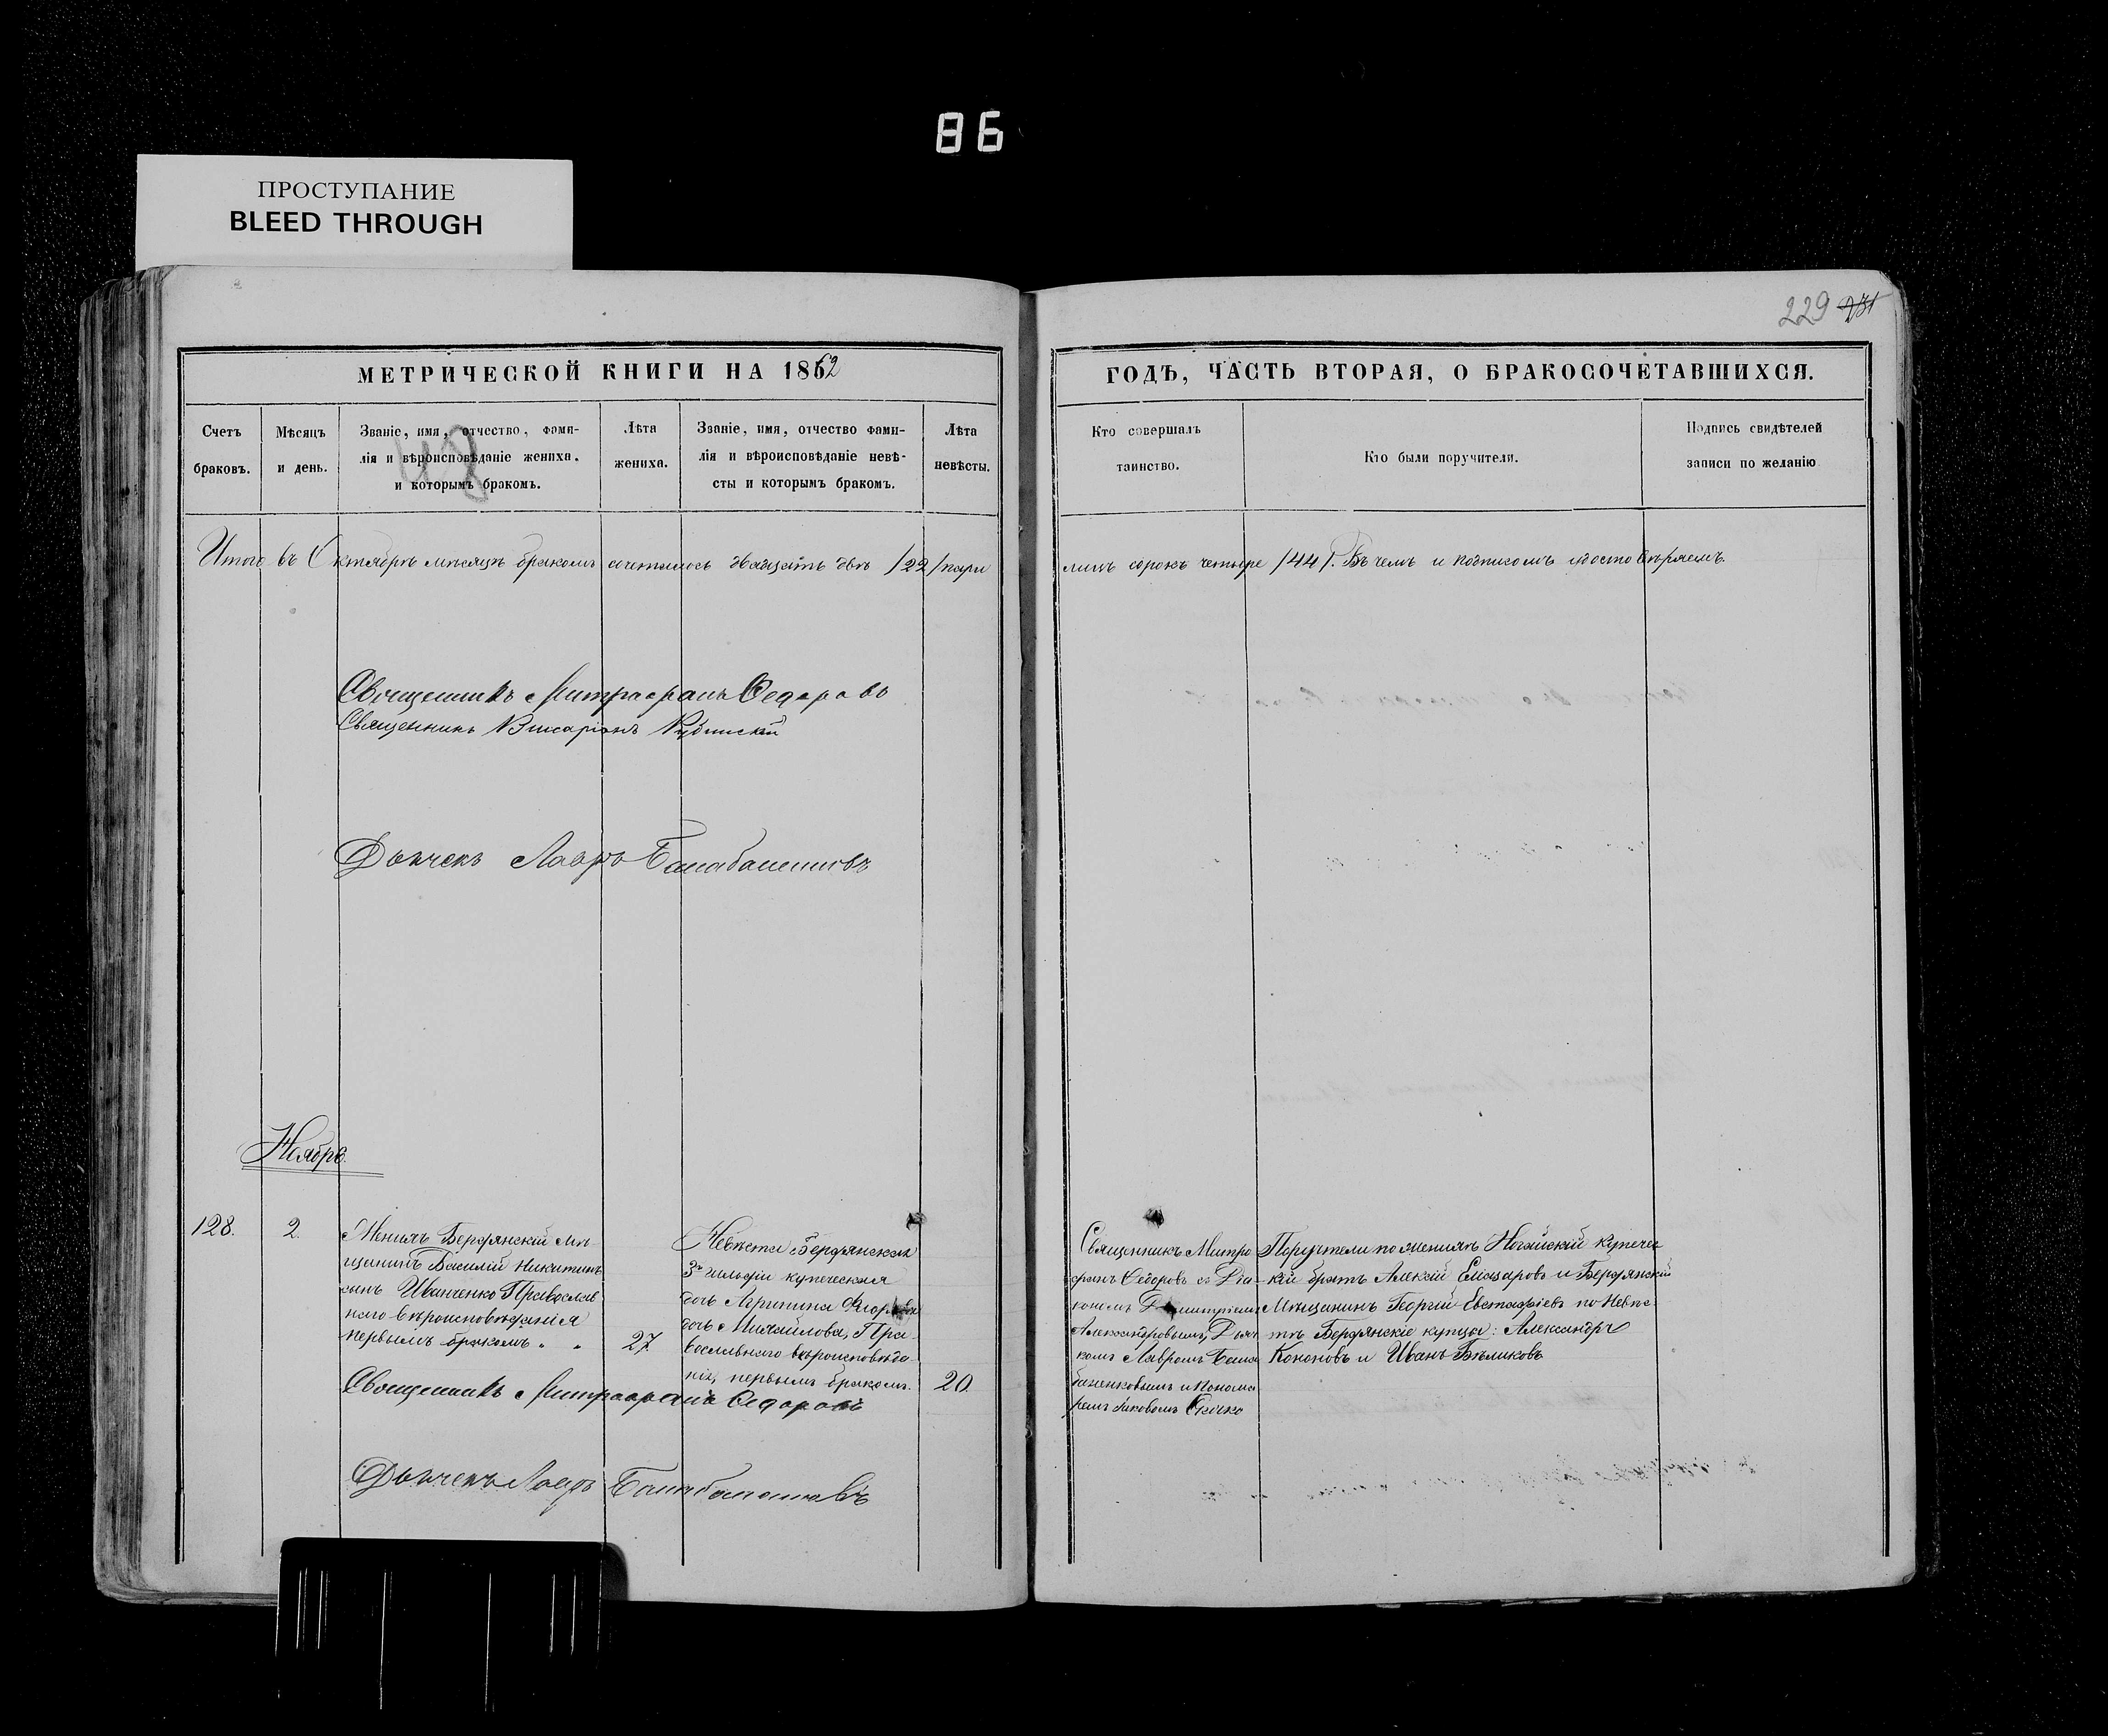 86
ПРОСТУПАНИЕ
BLEED THROUGH
229 231
МЕТРИЧЕСКОЙ КНИГИ НА 1862
ГОДЪ, ЧАСТЬ ВТОРАЯ, О БРАКОСОЧЕТАВШИХСЯ.
Счетъ
браковъ.
Мѣсяцъ
и день.
Званіе, имя, отчество, фами-
лія и вѣроисповѣданіе жениха.
и которымъ бракомъ.
Лѣта
жениха.
Званіе, имя, отчество фами-
лія и вѣроисповѣданіе невѣ-
сты и которымъ бракомъ.
Лѣта
невѣсты.
Кто совершалъ
таинство.
Кто были поручители.
Подпись свидѣтелей
записи по желанію
Итого въ Октябрѣ мѣсяцѣ бракомъ сочеталось двадцать двѣ /22/ пары
лицъ сорокъ четыре /44/. Въ чемъ и подписомъ удостовѣряемъ.
Священникъ Митрофанъ Федоровъ
Священникъ Висаріонъ
Дьячекъ Лавръ Балабаненковъ
Ноябрь.
128.
2.
Женихъ Бердянскій мѣ-
щанинъ Василій Никитинъ
сынъ Иванченко Православ
наго вѣроисповѣданія
первымъ бракомъ " "
27
Невѣста Бердянская
3й гильдіи купеческая
дочь Агрипина
дочь Михайлова, Пра-
вославнаго вѣроисповѣда-
нія, первымъ бракомъ.
20.
Священникъ Митро
фанъ Федоровъ съ Діа-
кономъ Димитріемъ
Александровымъ, Дьяч
комъ Лавромъ Бала
баненковымъ и Понома
ремъ Яковомъ
Поручители по женихѣ Ногайскій купечес
кій братъ Алексій Елизаровъ и Бердянскій
Мѣщанинъ Георгій Евстафіевъ по Невѣс-
тѣ Бердянскіе купцы: Александръ
Кононовъ и Иванъ Бѣликовъ
Священникъ Митрофанъ Федоровъ
Дьячекъ Лавръ Балабаненковъ